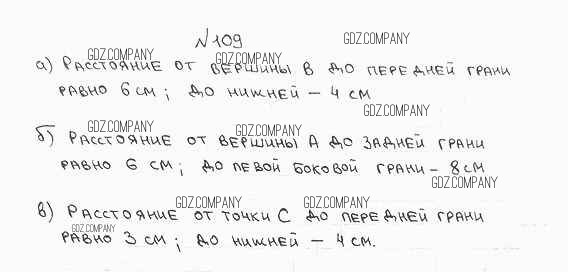 №109
GDZ.COMPANY
GDZ.COMPANY GDZ.COMPANY
а) Расстояние от вершины В до передней грани
равно 6 см; до нижней – 4 см
GDZ.COMPANY
GDZ.COMPANY GDZ.COMPANY
б) Расстояние от вершины А до задней грани
равно 6 см; до левой боковой грани – 8 см
GDZ.COMPANY
GDZ.COMPANY GDZ.COMPANY
в) Расстояние от точки С до передней грани
GDZ.COMPANY
равно 3 см; до нижней – 4 см.